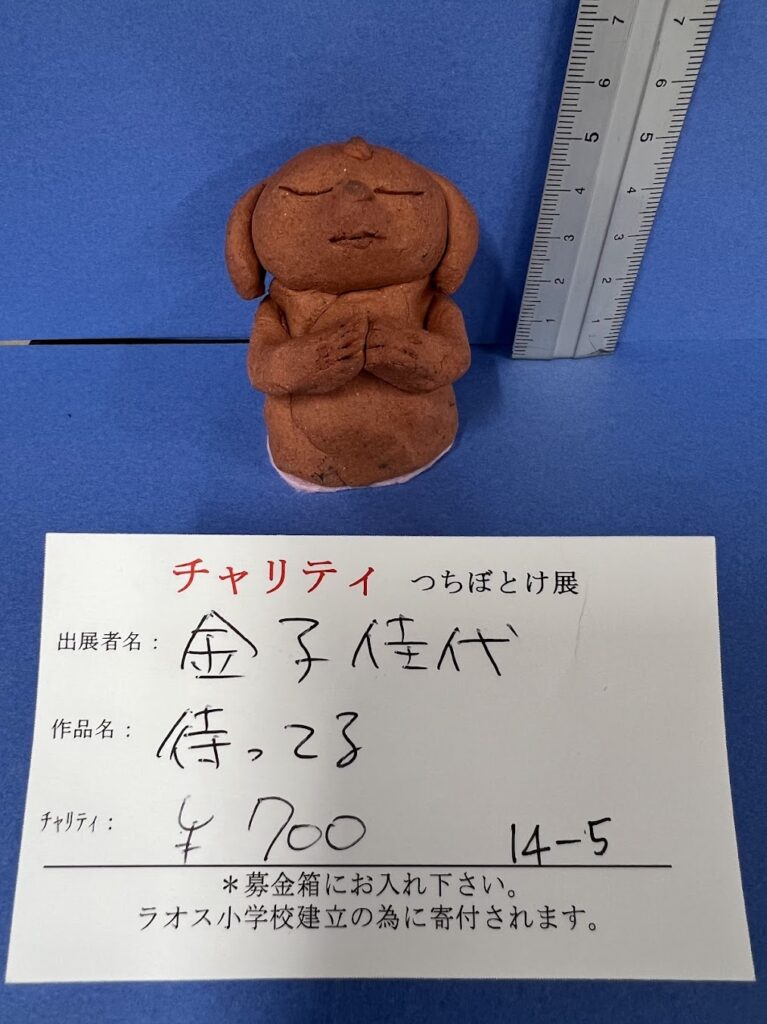 7 7
6 6
5 5
4 4
3 3
2 2
1 1
チャリティ つちぼとけ展
出展者名： 金子佳代
作品名： 待ってる
ﾁｬﾘﾃｨ： ¥700 14-5
＊募金箱にお入れ下さい。
ラオス小学校建立の為に寄付されます。